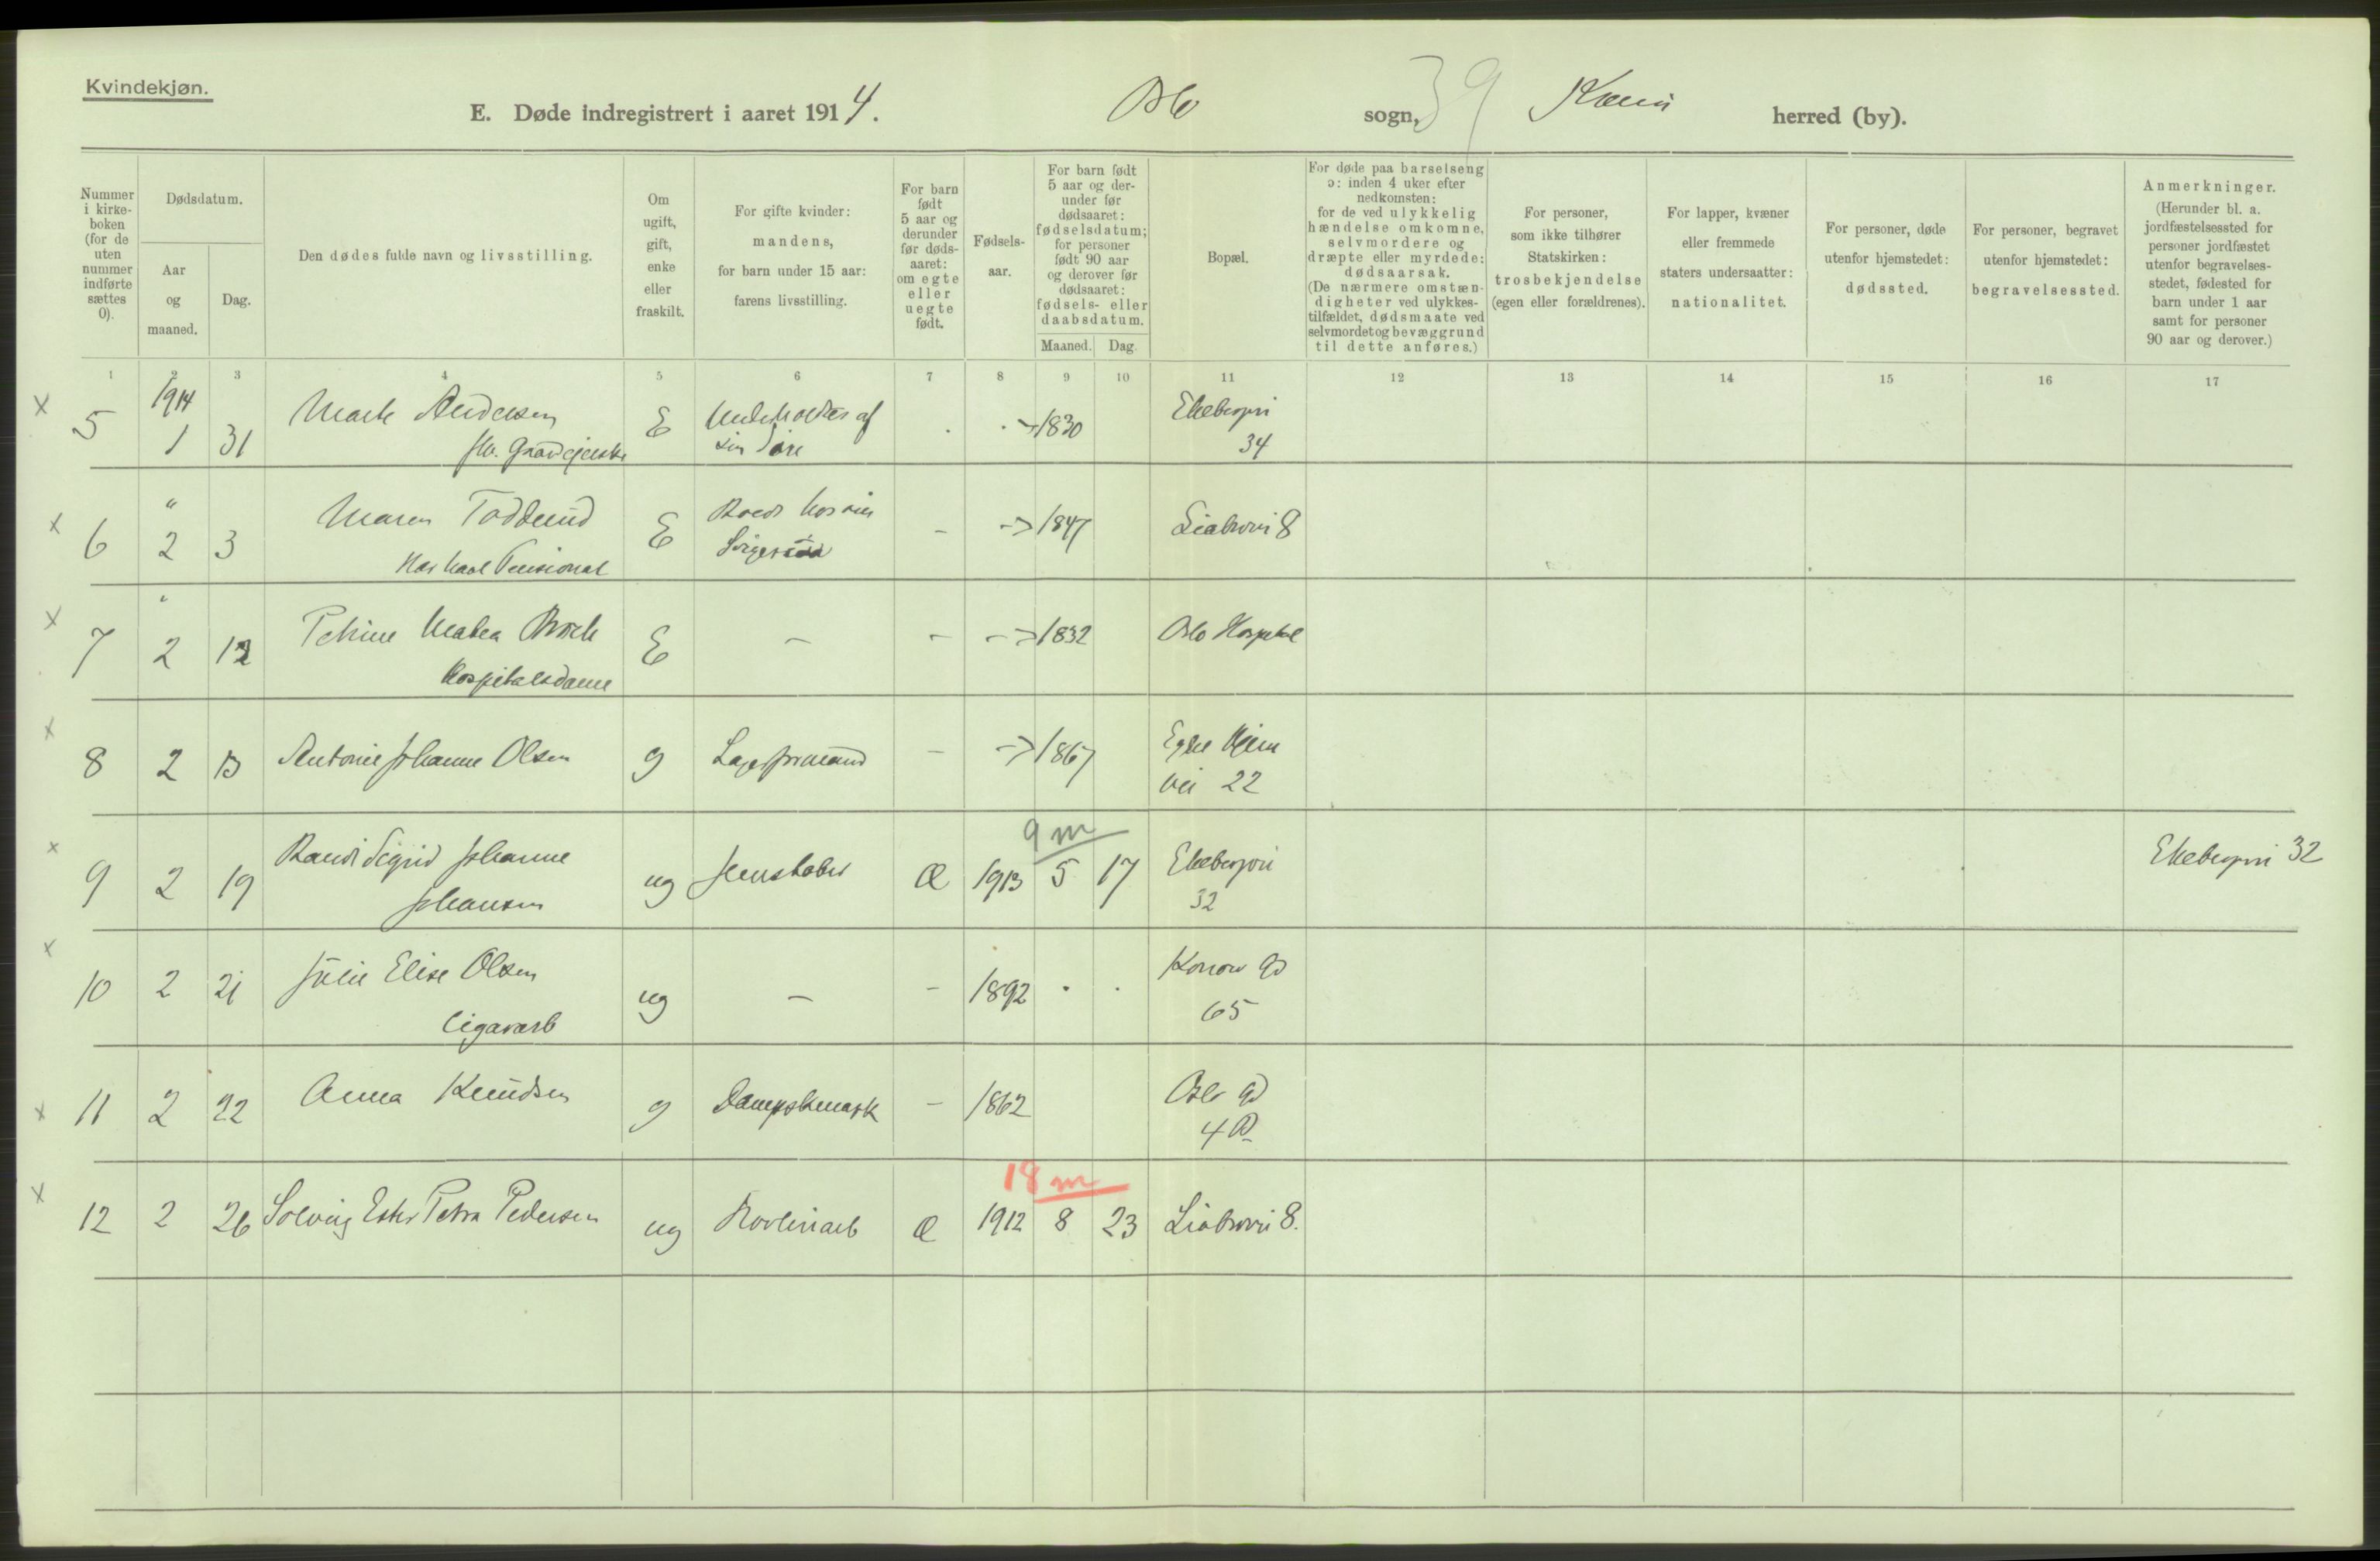 Kvindekjøn.
E. Døde indregistrert i aaret 1914. Oslo sogn, 39 Kania herred (by).
Nummer i kirke-boken (for de uten nummer indførte sættes 0).
Dødsdatum.
Aar og maaned.
Dag.
Den dødes fulde navn og livsstilling.
Om ugift, gift, enke eller fraskilt.
For gifte kvinder: mandens, for barn under 15 aar: farens livsstilling.
For barn født 5 aar og derunder før døds-aaret: om egte eller uegte født.
Fødsels-aar.
For barn født 5 aar og der-under før dødsaaret: fødselsdatum; for personer født 90 aar og derover før dødsaaret: fødsels- eller daabsdatum.
Maaned. Dag.
Bopæl.
For døde paa barselseng ɔ: inden 4 uker efter nedkomsten: for de ved ulykkelig hændelse omkomne, selvmordere og dræpte eller myrdede: dødsaarsak. (De nærmere omstæn-digheter ved ulykkes-tilfældet, dødsmaate ved selvmordet og bevæggrund til dette anføres.)
For personer, som ikke tilhører Statskirken: trosbekjendelse (egen eller forældrenes).
For lapper, kvæner eller fremmede staters undersaatter: nationalitet.
For personer, døde utenfor hjemstedet: dødssted.
For personer, begravet utenfor hjemstedet: begravelsessted.
Anmerkninger. (Herunder bl. a. jordfæstelsessted for personer jordfæstet utenfor begravelses-stedet, fødested for barn under 1 aar samt for personer 90 aar og derover.)
1 2 3 4 5 6 7 8 9 10 11 12 13 14 15 16 17
x 5 1914 1 31 Marte Andersen E Underholdes af sin 1830 Ekebergvei 34
fhv. Gaardejerske
x 6 " 2 3 Maren Todderud E hos sin Svigersøn - -> 1847 Liabrovei 8
Har havt Pensionat
x 7 " 2 12 Petrine Mathea Broch E - - -> 1832 Oslo Hospital
Hospitalsdame
x 8 2 13 Antonie Johanne Olsen g Lagerformand - -> 1867 Egne Hjem vei 22
9 m
x 9 2 19 Randi Sigrid Johanne Johansen ug Jernstøber Æ 1913 5 17 Ekebergvei 32 Ekebergvei 32
x 10 2 21 Julie Elise Olsen ug - - 1892 Konow Gd 65
Cigararb
x 11 2 22 Anna Knudsen g Dampskmask - 1862 Oslo Gd 4 B
18 m
x 12 2 26 Solveig Ester Petra Pedersen ug Æ 1912 8 23 Liabrovei 8.